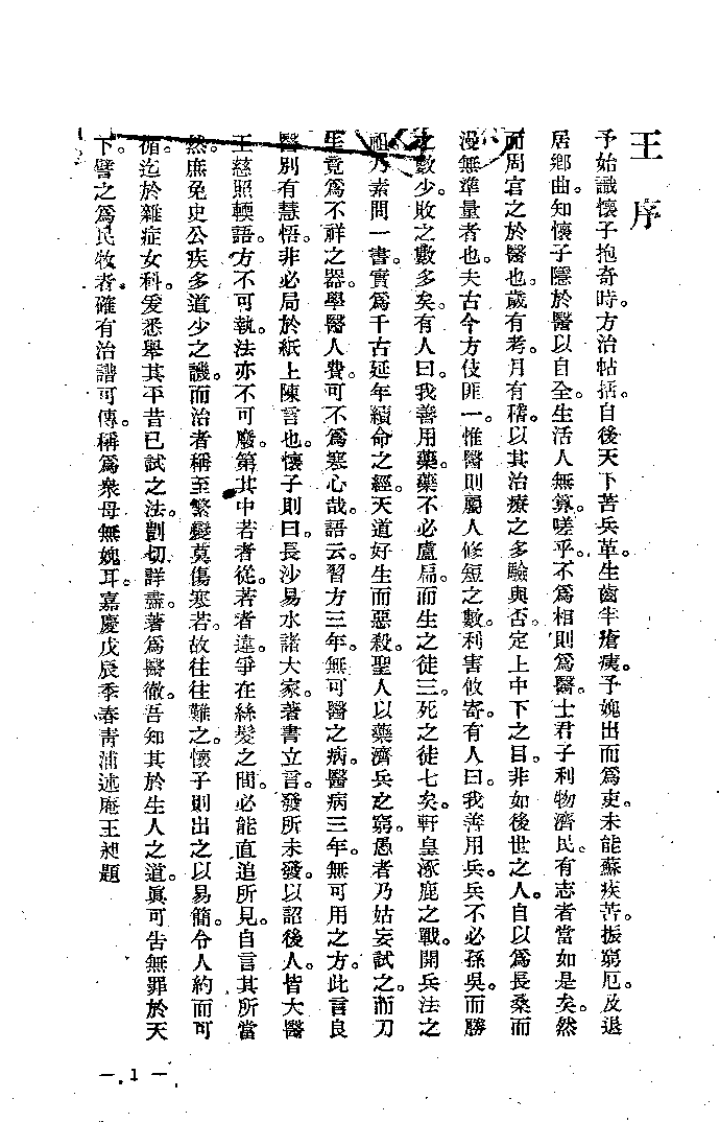 王序
予始識懷子抱奇時。方治帖括。自後天下苦兵革。生齒半瘡痍。予媿出而爲吏。未能蘇疾苦。振窮厄。及退
居鄉曲。知懷子隱於醫以自全。生活人無算。嗟乎。不爲相則爲醫。士君子利物濟民。有志者當如是矣。然
而周官之於醫也。歲有考。月有稽。以其治療之多驗與否。定上中下之目。非如後世之人。自以爲長桑而
漫無準量者也。夫古今方伎匪一。惟醫則屬人修短之數。利害攸寄。有人曰。我善用兵。兵不必孫吳。而勝
之數少。敗之數多矣。有人曰。我善用藥。藥不必盧扁。而生之徒三。死之徒七矣。軒皇涿鹿之戰。開兵法之
祖。乃素問一書。實爲千古延年續命之經。天道好生而惡殺。聖人以藥濟兵之窮。愚者乃姑妄試之。而刀
圭竟爲不祥之器。學醫人費。可不爲寒心哉。語云。習方三年。無可醫之病。醫病三年。無可用之方。此言良
醫別有慧悟。非必局於紙上陳言也。懷子則曰。長沙易水諸大家。著書立言。發所未發。以詔後人。皆大醫
王慈照輭語。方不可執。法亦不可廢。第其中若者從。若者違。爭在絲髮之間。必能直追所見。自言其所當
然。庶免史公疾多道少之譏。而治者稱至繁變莫傷寒若。故往往難之。懷子則出之以易簡。令人約而可
循。迄於雜症女科。爰悉舉其平昔已試之法。剴切詳盡。著爲醫徹。吾知其於生人之道。眞可告無罪於天
下。譬之爲民牧者。確有治譜可傳。稱爲衆母無媿耳。嘉慶戊辰季春青浦述庵王昶題
— 1 —